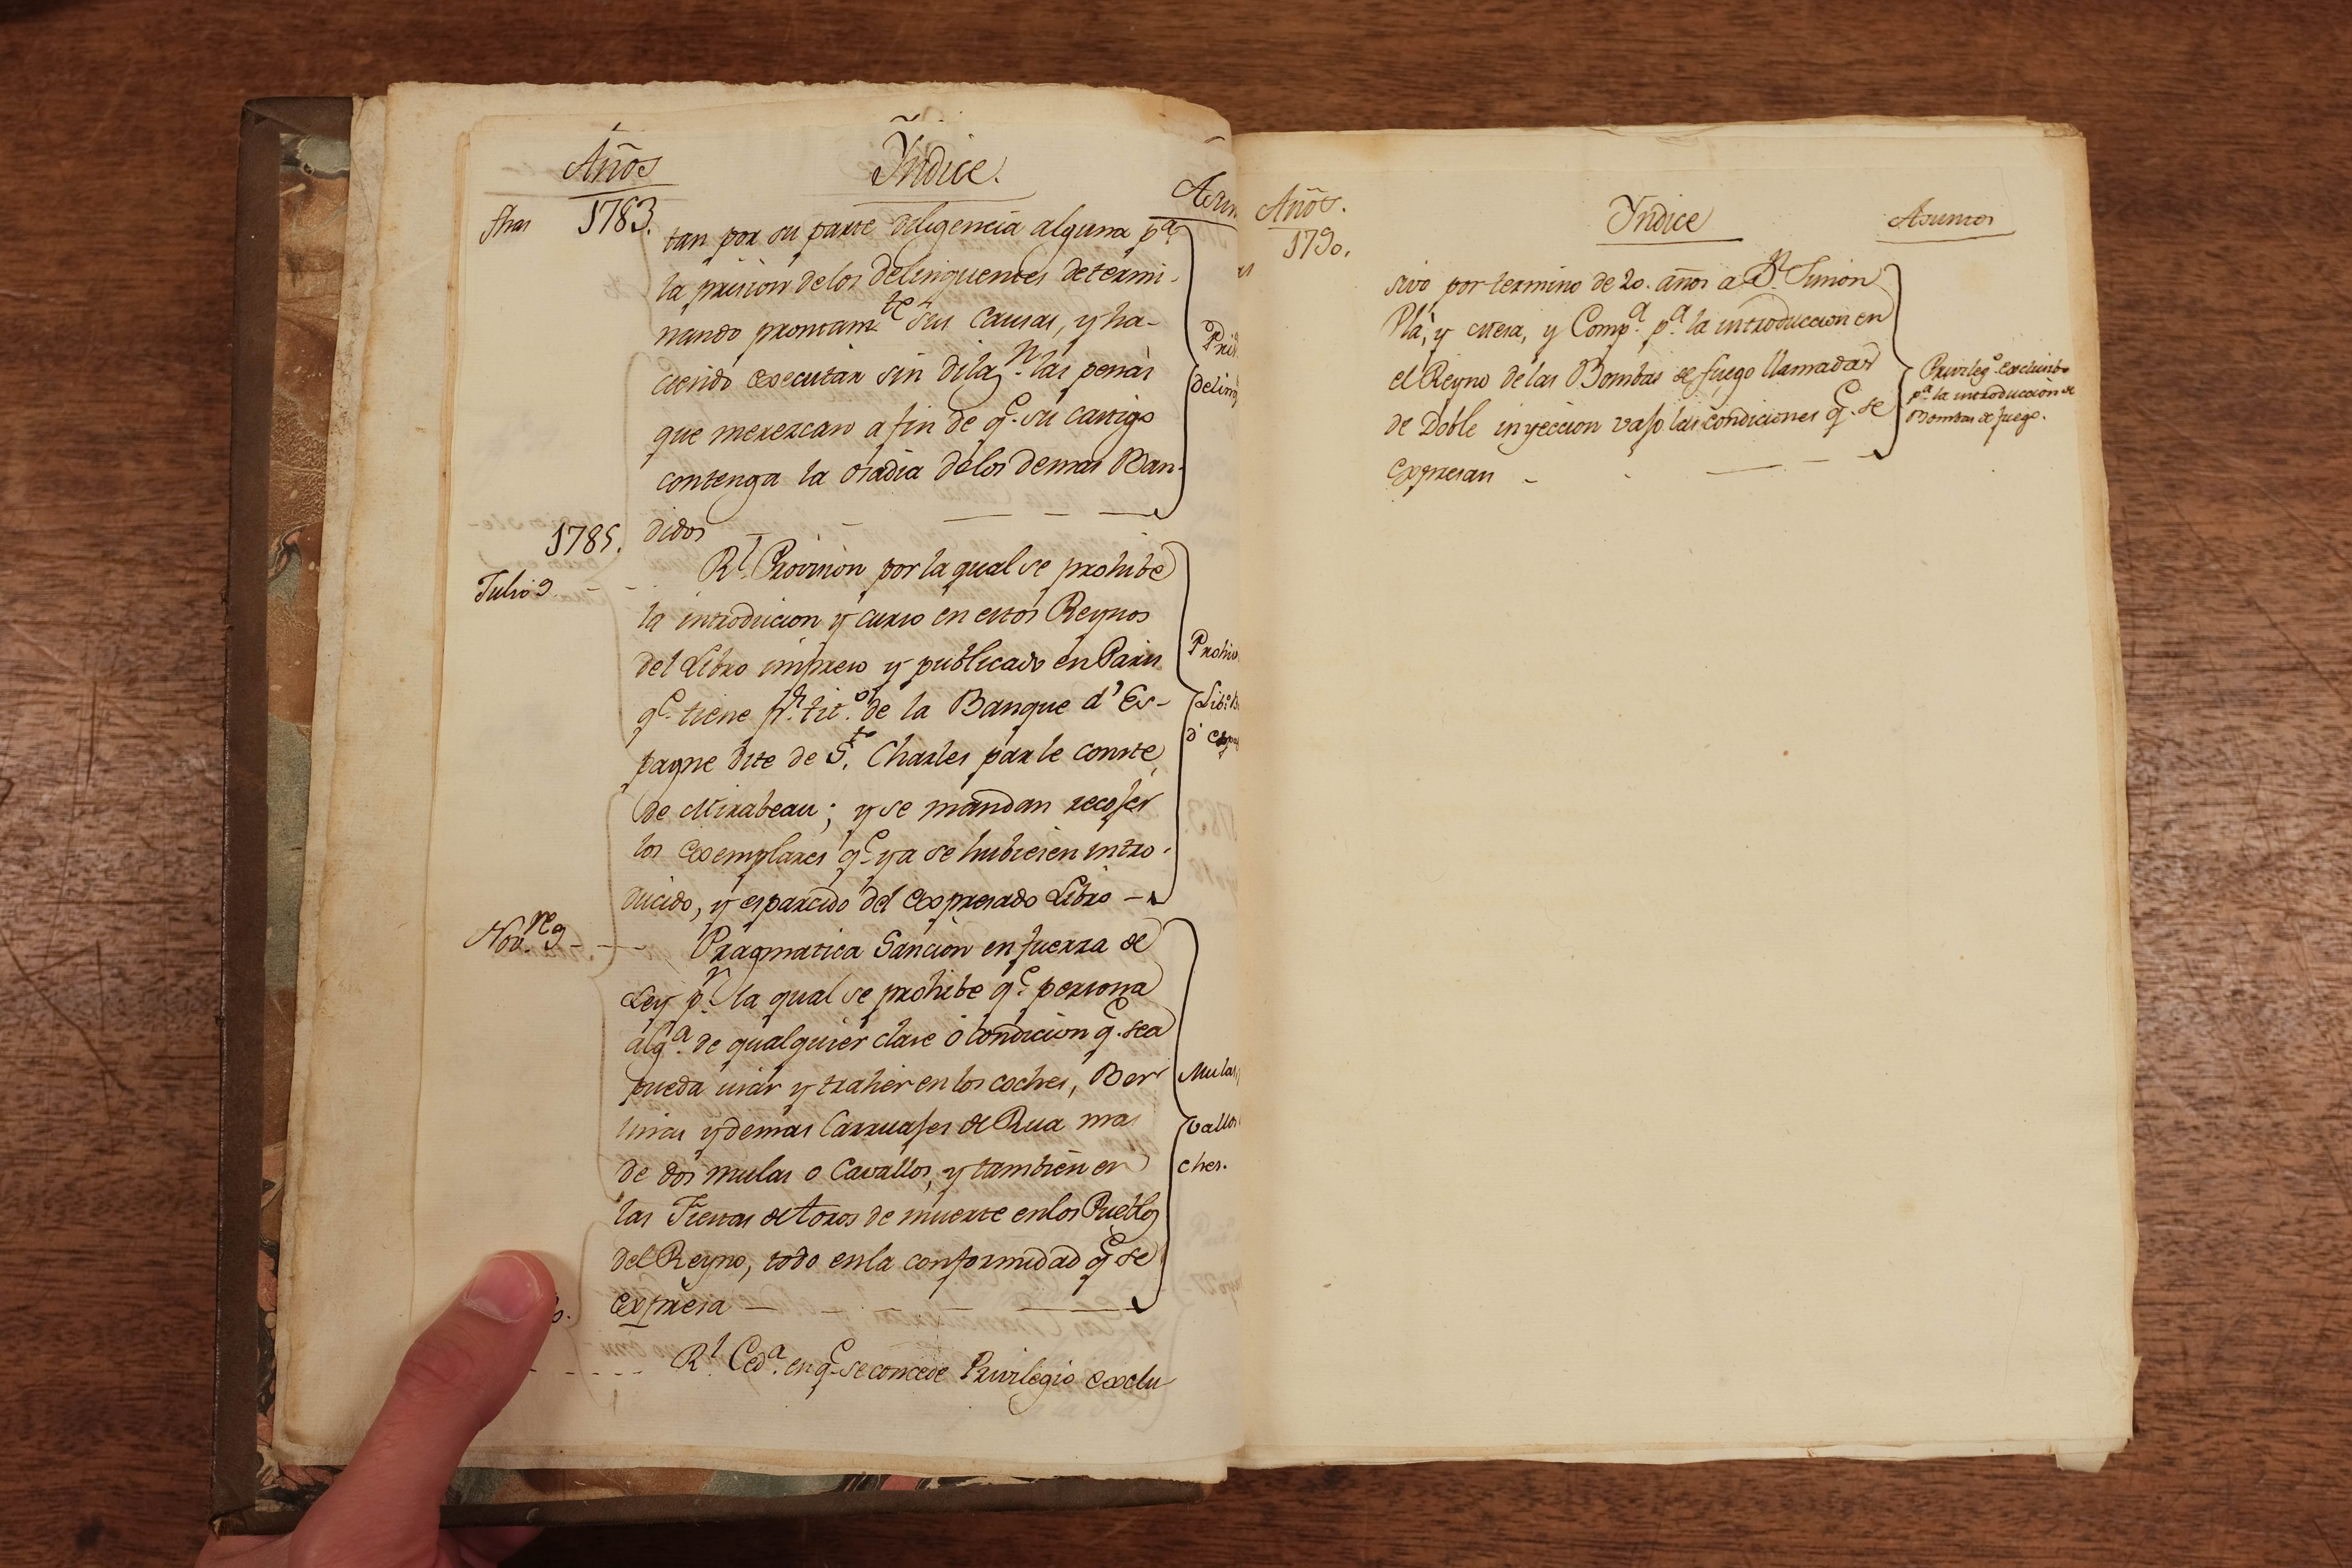 Años
Yndice.
Asun
1783.
tan por su parte diligencia alguna p.ª
la prision de los delinquentes determi-
nando prontam.te sus Causas, y ha-
ciendo executar sin dilaz.n las penas
que merezcan a fin de q.e su castigo
contenga la osadia de los demas Ban-
didos
Pris.
delinq
1785.
Julio 9.
R.l Provision por la qual se prohibe
la introducion y curso en estos Reynos
del Libro impreso y publicado en Paris
q.e tiene p.r tit.o de la Banque d' Es-
pagne dite de S.t Charles par le Comte
de Mirabeau; y se mandan recojer
los exemplares q.e ya se hubiesen intro-
ducido, y esparcido del expresado Libro
Prohiv
Lib.o
d'
Nov.re 9
Pragmatica Sancion en fuerza de
Ley p.r la qual se prohibe q.e persona
alg.a de qualquier clase ó condicion q.e sea
pueda usar y traher en los coches, Ber-
linas y demas Carruajes de Rua mas
de dos mulas o Cavallos, y tambien en
las Fiestas de toros de muerte en los Pueblos
del Reyno, todo en la conformidad q.e se
expresa
Mulas,
vallos
ches.
R.l Ced.a en q.e se concede Privilegio exclu
Años.
Yndice
Asuntos
1790.
sivo por termino de 20. años a D.n Simon
Plá, y Mesa, y Comp.a p.a la introduccion en
el Reyno de las Bombas de fuego llamadas
de Doble inyeccion vajo las condiciones q.e se
expresan
Privileg.o exclusivo
p.a la introduccion de
Bombas de fuego.